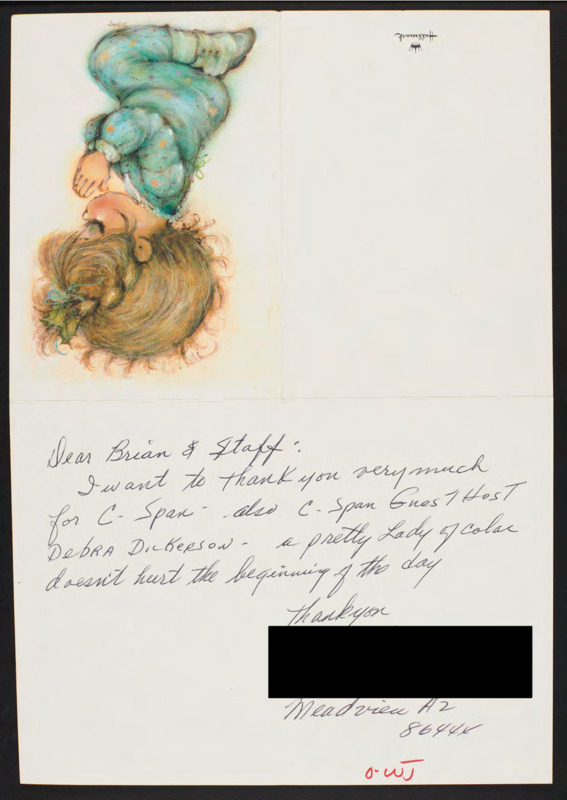 Hallmark
Dear Brian & Staff:
I want to thank you very much
for C-Span - also C-Span Guest Host
DEbRA DICKERSON - a pretty Lady of color
doesn't hurt the beginning of the day
Thank you
Meadview AZ
8644x
O-WJ